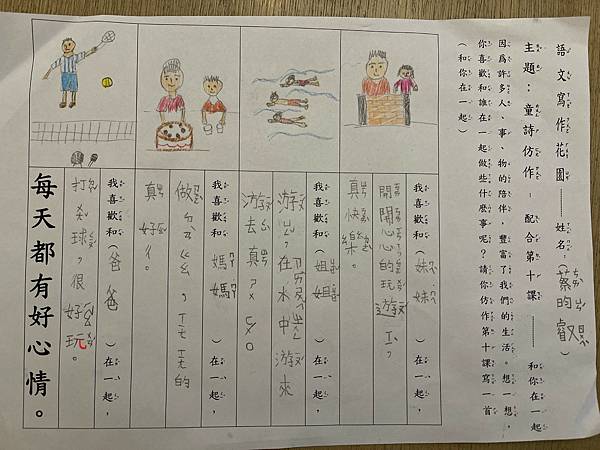 語文寫作花園………姓名：蔡昀叡）
主題：童詩仿作——配合第十課——和你在一起
因為許多人、事、物的陪伴，豐富了我們的生活。想一想，
你喜歡和誰在一起做些什麼事呢？請你仿作第十課寫一首
（和你在一起）
我喜歡和（妹妹）在一起，
開開心心的玩遊ㄒㄧ，
真快樂。
我喜歡和（姐姐）在一起，
游ㄩㄥ，在水中游來
游去真ㄕㄨㄈㄨ。
我喜歡和（媽媽）在一起，
做ㄉㄢㄍㄠ，ㄊㄧㄢㄊㄧㄢ的
真好ㄔ。
我喜歡和（爸爸）在一起，
打ㄨㄤ球，很好玩。
每天都有好心情。